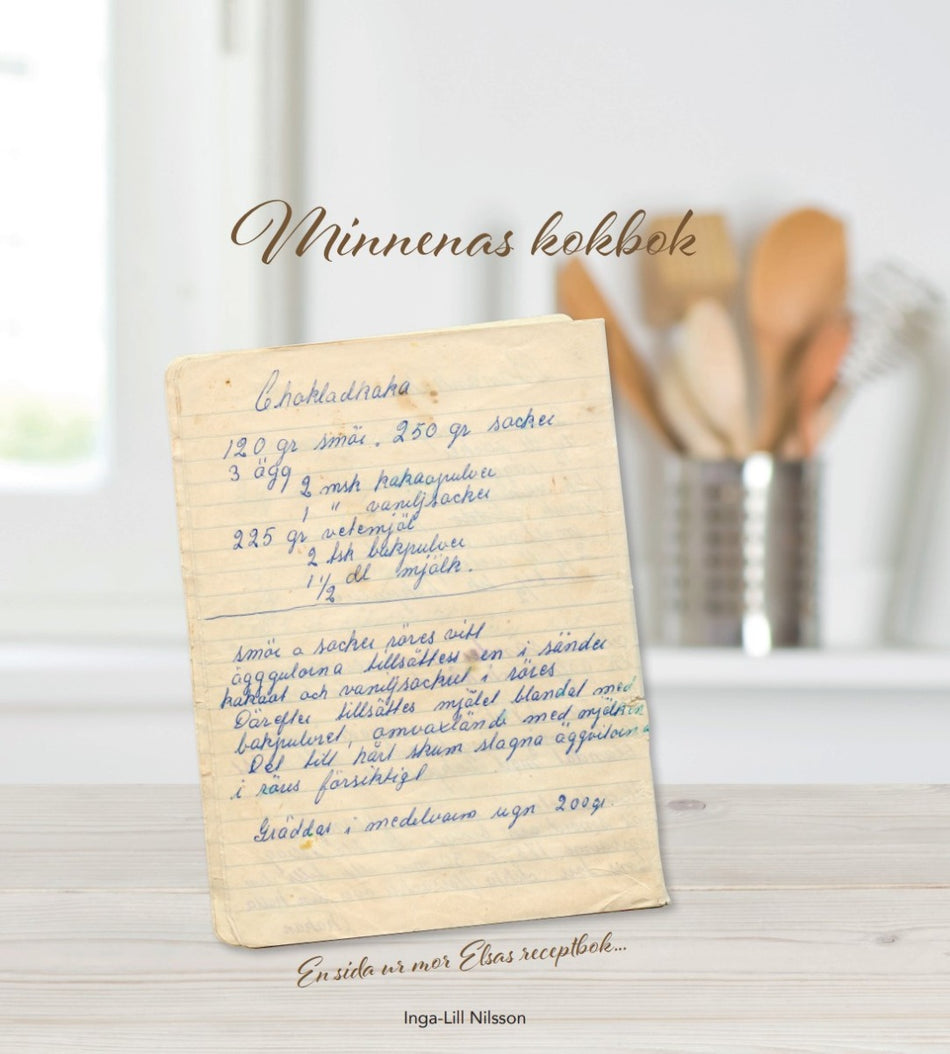 Minnenas kokbok
Chokladkaka
120 gr smör. 250 gr socker
3 ägg
2 msk kakaopulver
1 " vaniljsocker
225 gr vetemjöl
2 tsk bakpulver
1 1/2 dl mjölk.
smör o socker röres vitt
äggguloina tillsättess en i sänder
kakaot och vaniljsockret i röres
Därefter tillsättes mjölet blandat med
bakpulvret, omvaxlände med mjölken
Det till hårt skum slagna äggvitorna
i röres försiktigt
Gräddas i medelvarm ugn 200gr.
En sida ur mor Elsas receptbok...
Inga-Lill Nilsson